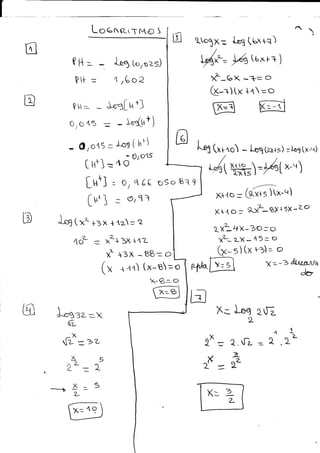 LOGARITMOS
1
PH = - Log (0,025)
PH = 1,602
2
PH = - Log [H+]
0,015 = - Log (H+)
- 0,015 = Log (H+)
[H+] = 10^-0,015
[H+] = 0,966 050 879
[H+] = 0,97
3
Log (x² + 3x + 12) = 2
10² = x² + 3x + 12
x² + 3x - 88 = 0
(x + 11) (x - 8) = 0
x - 8 = 0
x = 8
4
Log 32 = x
√2
√2^x = 32
2^(x/2) = 2^5
→ x/2 = 5
x = 10
5
2Log x = Log (6x+7)
Log x² = Log (6x+7)
x² - 6x - 7 = 0
(x-7)(x+1) = 0
x = 7 x = -1
6
Log (x+10) - Log (2x+5) = Log (x-4)
Log (x+10/2x+5) = Log (x-4)
x+10 = (2x+5)(x-4)
x+10 = 2x² - 8x + 5x - 20
2x² - 4x - 30 = 0
x² - 2x - 15 = 0
(x-5)(x+3) = 0
Rpta x = 5 x = -3
7
x = Log 2√2
2
2^x = 2.√2 = 2^1 . 2^(1/2)
2^x = 2^(3/2)
x = 3/2